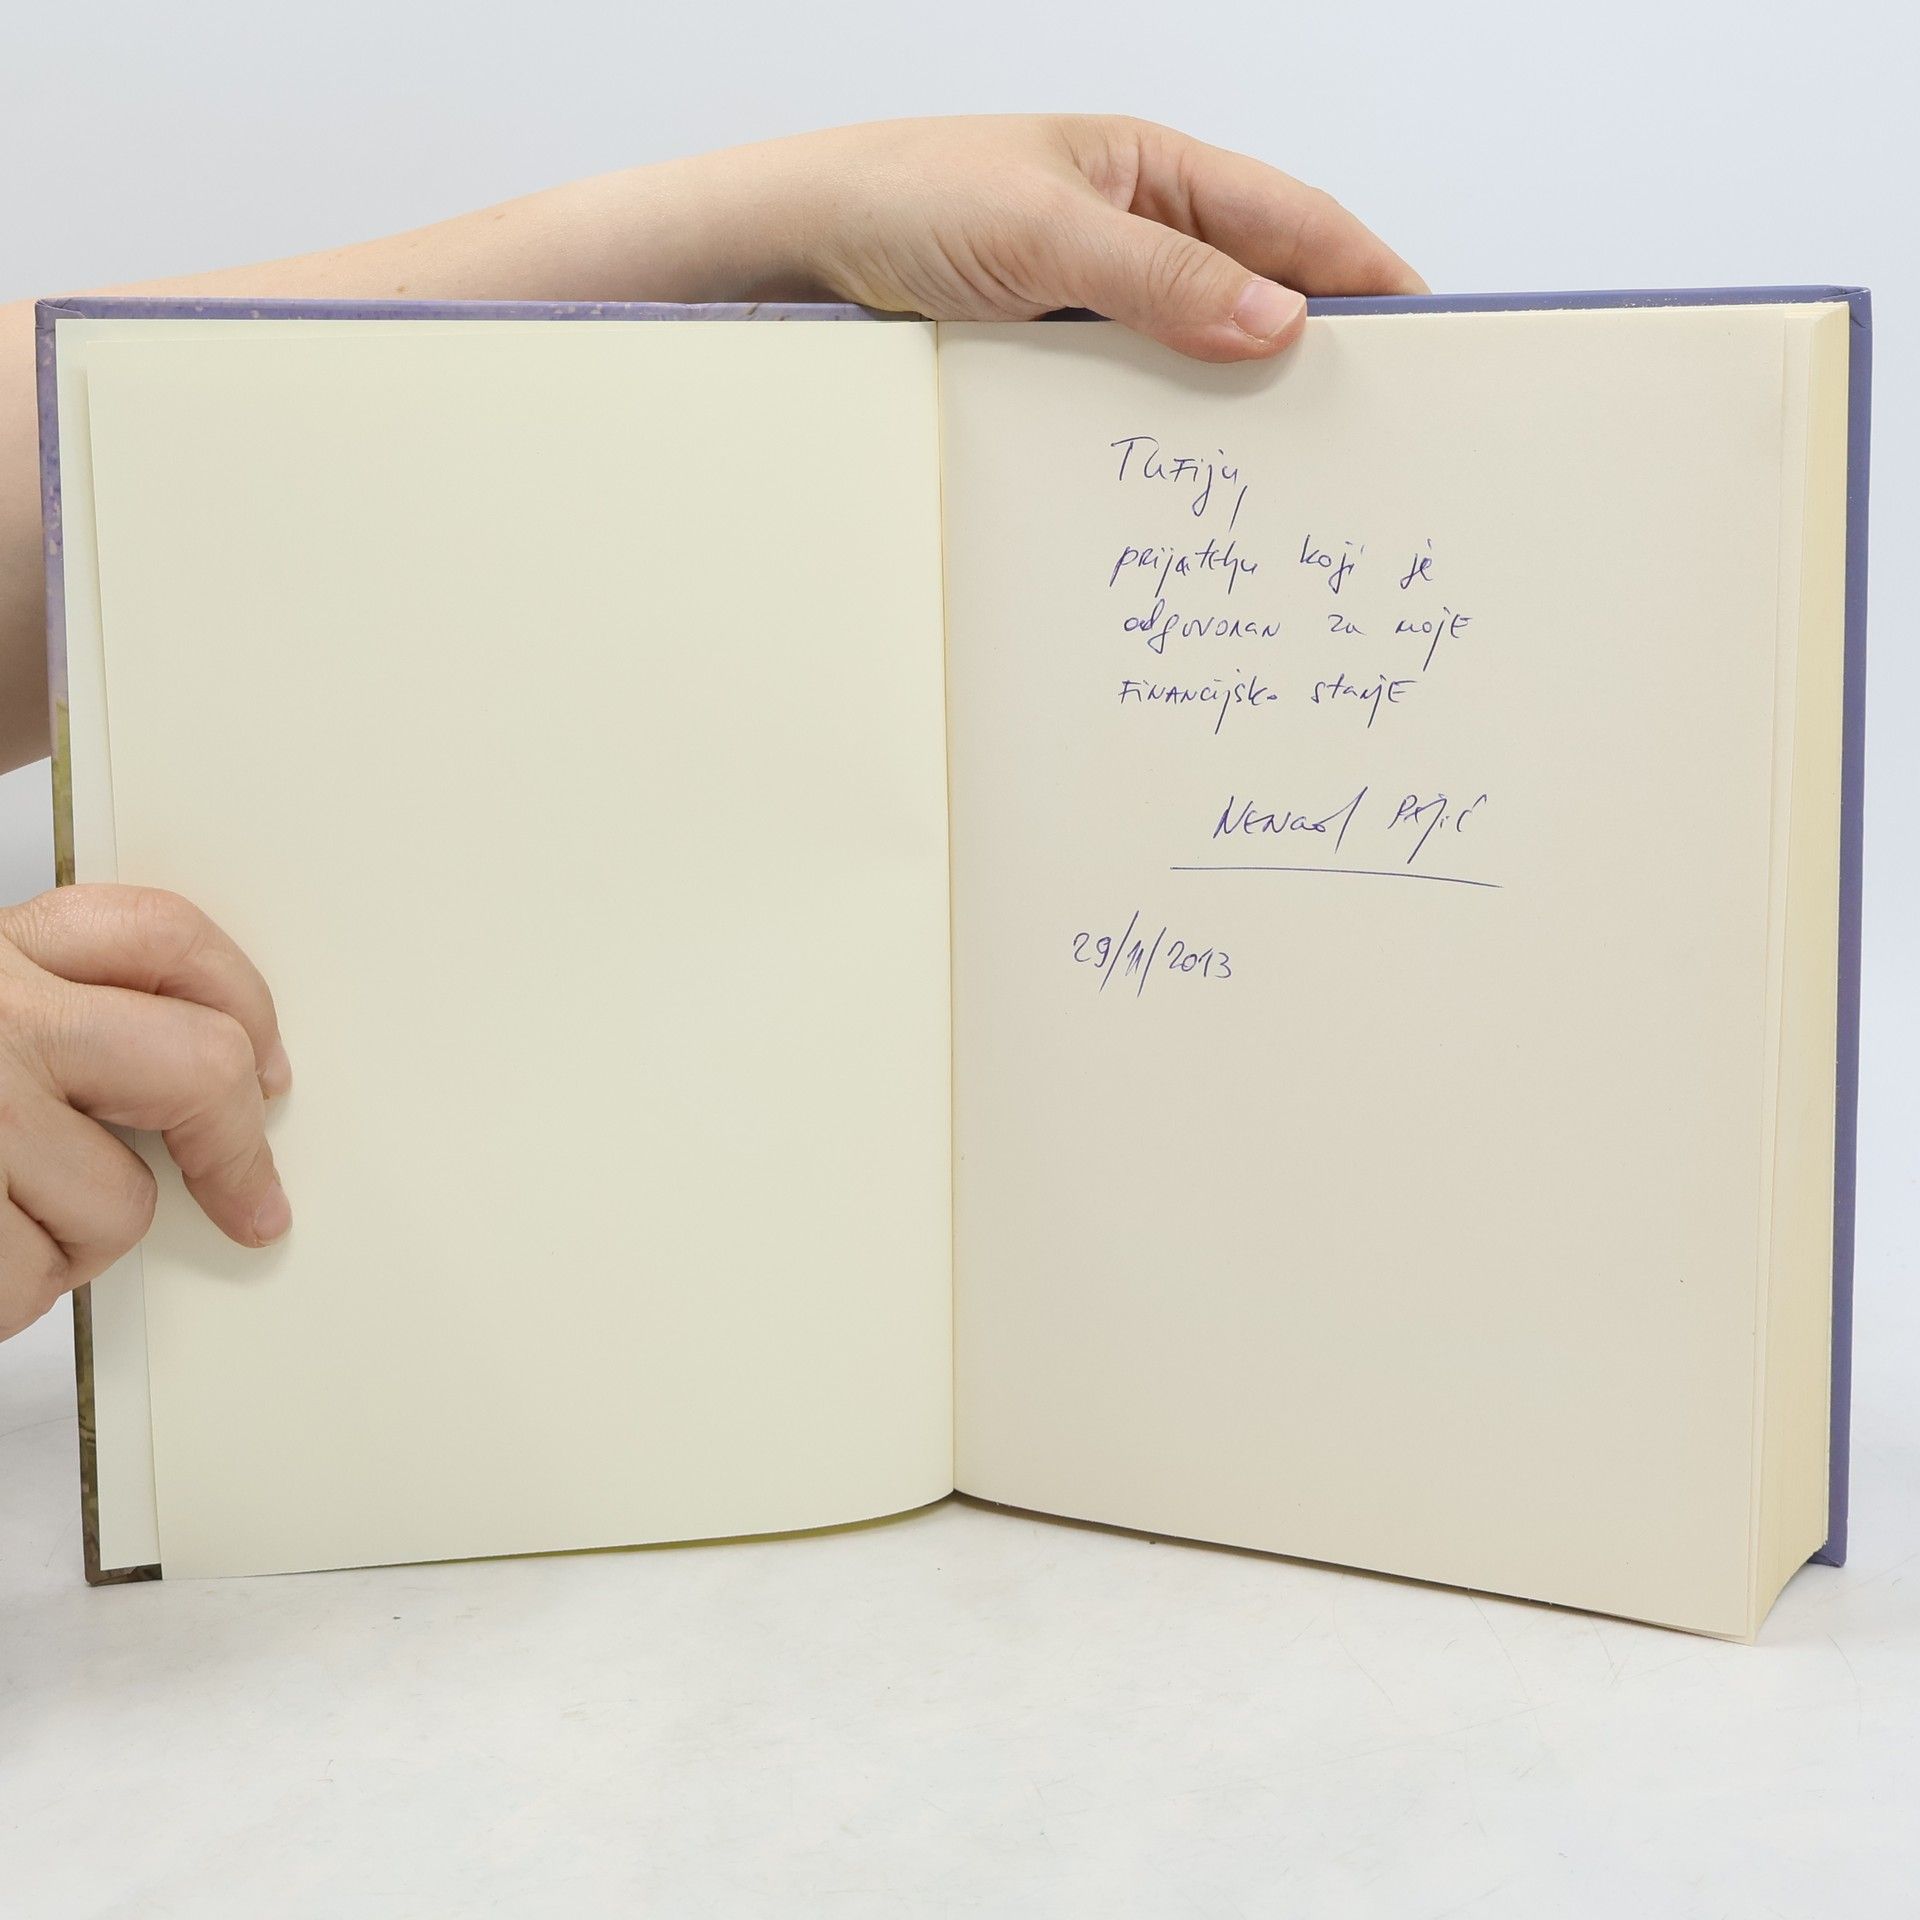 Tufiju,
prijatelju koji je
odgovoran za moje
financijsko stanje
Nenad Pejić
29/11/2013